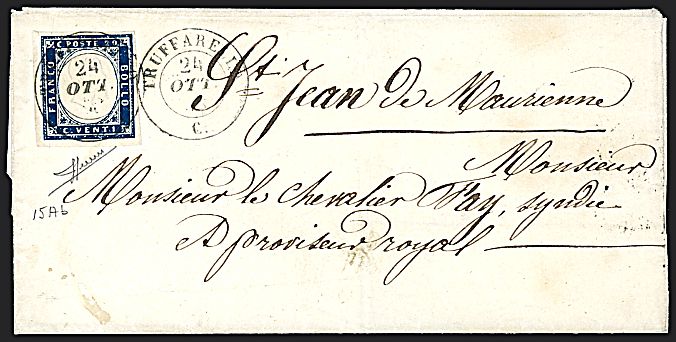 C. POSTE 20
FRANCO
BOLLO
C. VENTI
24
OTT.
TRUFFARELLO
24
OTT.
C.
St. Jean de Maurienne
Monsieur
Monsieur le chevalier Fay, syndic
A proviseur royal
15Ab